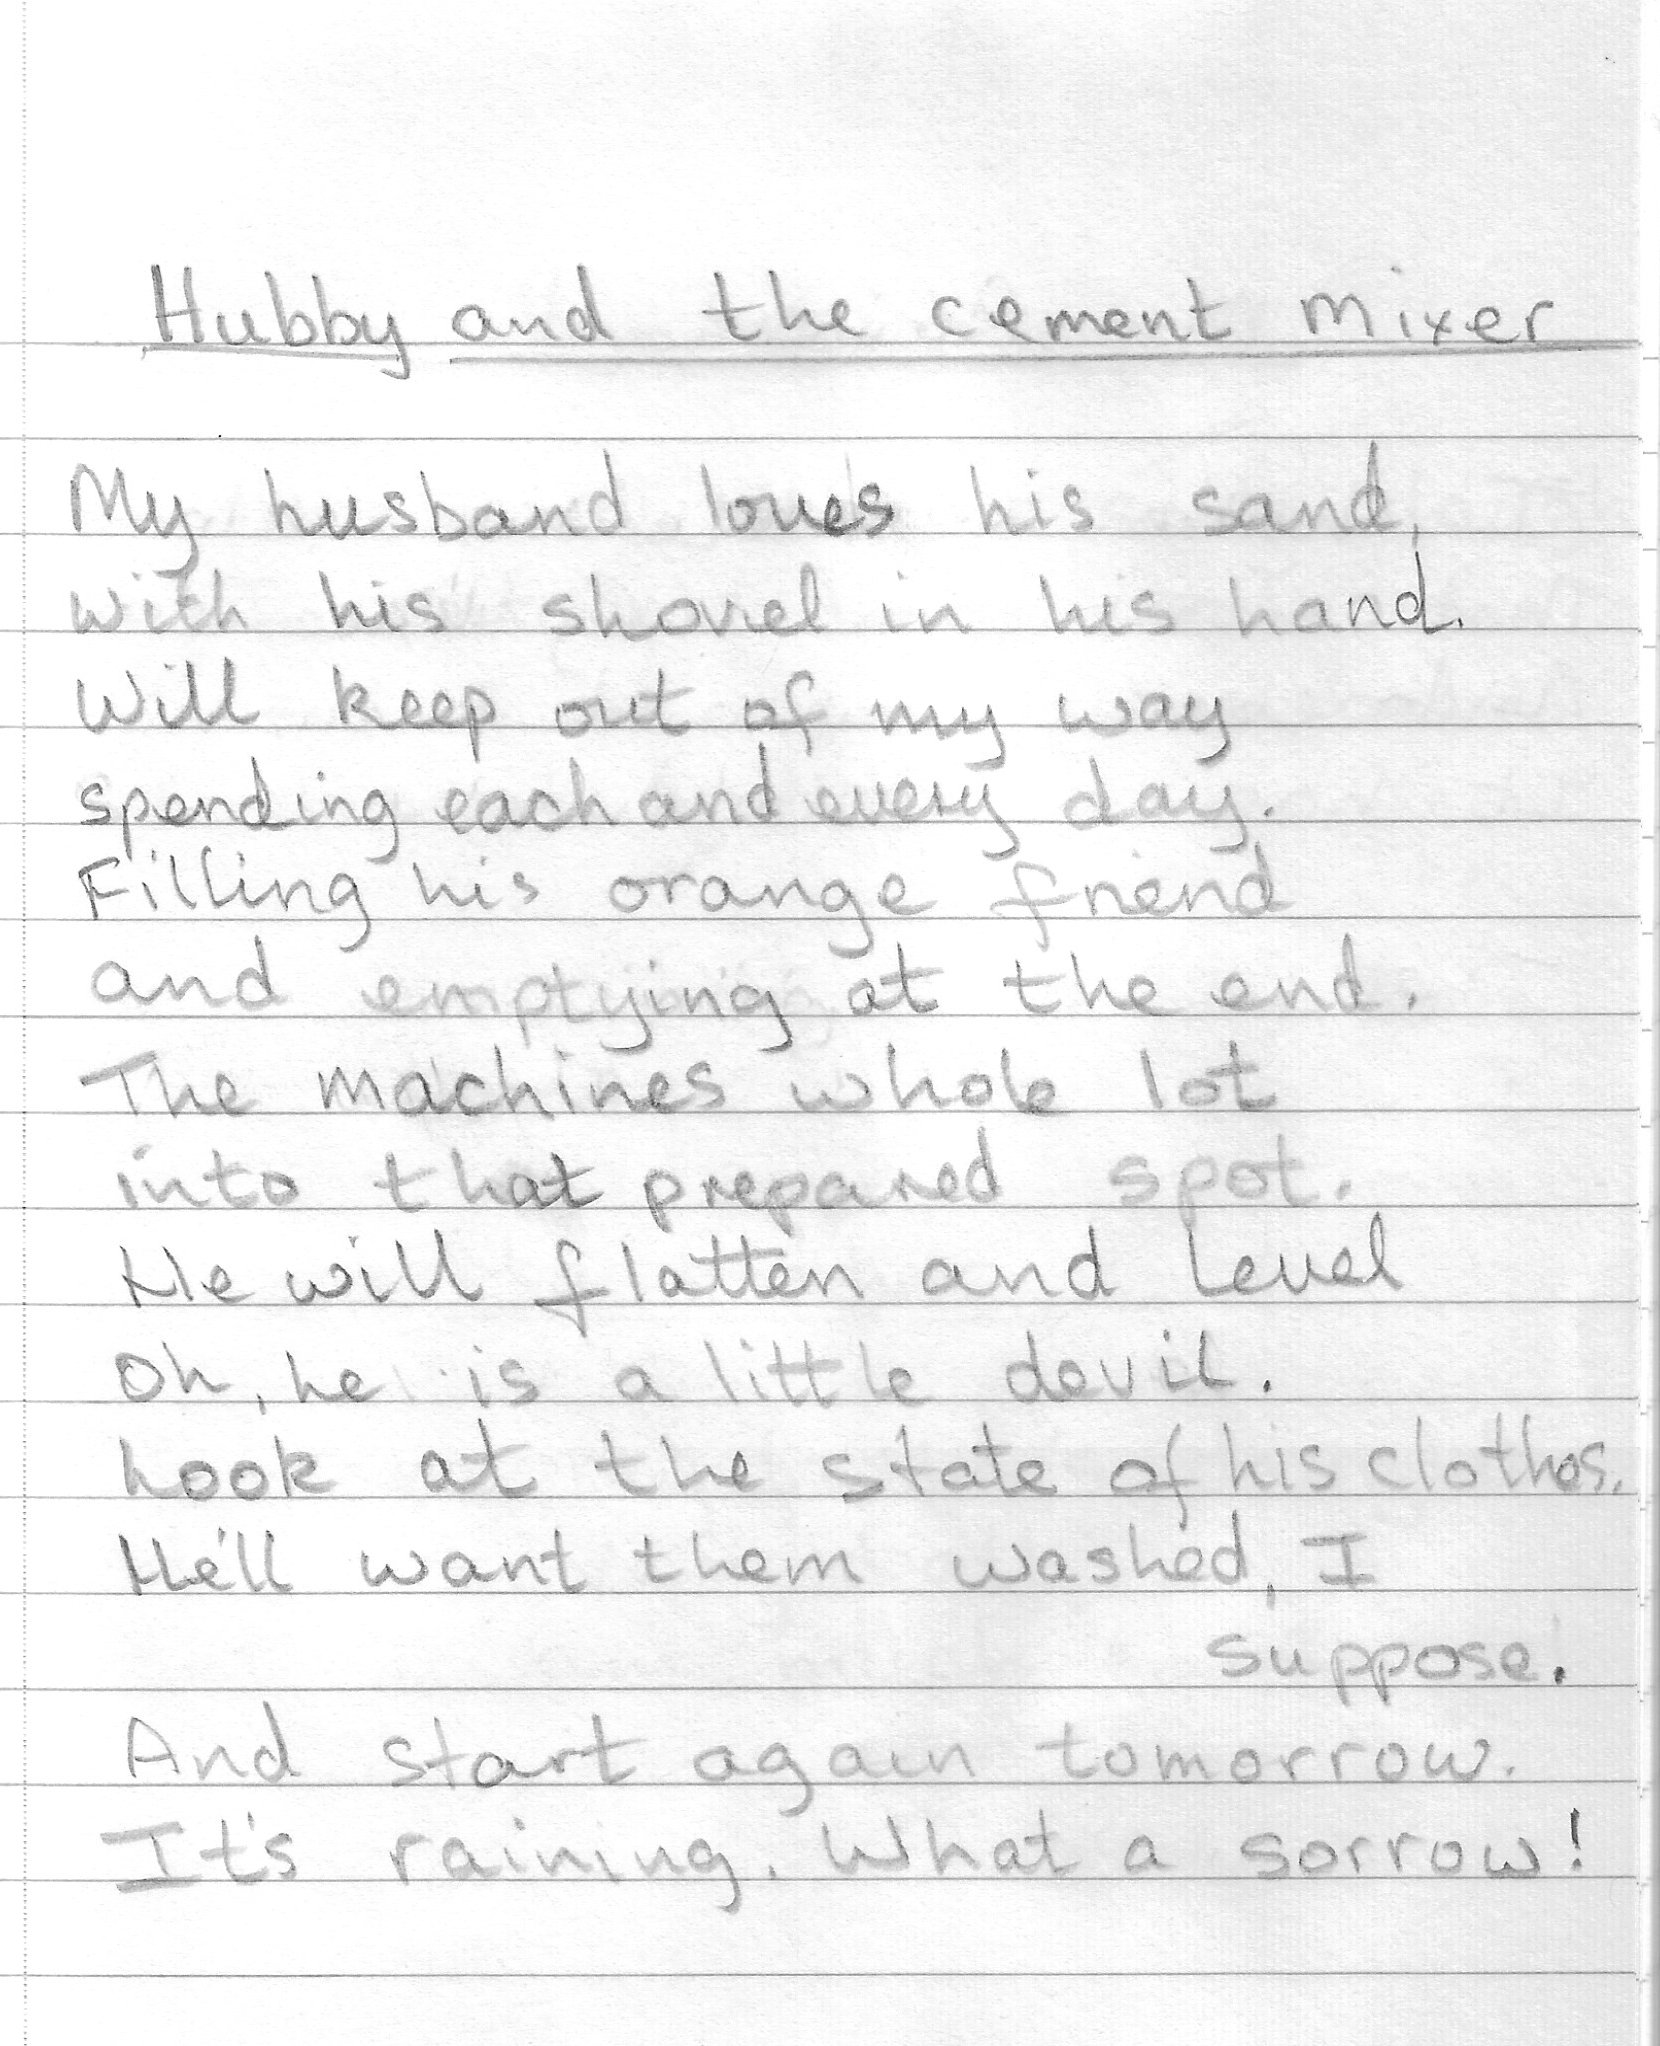 Hubby and the cement mixer
My husband loves his sand,
with his shovel in his hand.
Will keep out of my way
spending each and every day.
Filling his orange friend
and emptying at the end.
The machines whole lot
into that prepared spot.
He will flatten and level
Oh, he is a little devil.
Look at the state of his clothes.
He'll want them washed, I
suppose.
And start again tomorrow.
It's raining. What a sorrow!